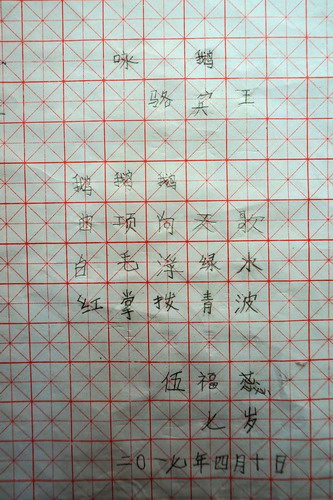 咏鹅
骆宾王
鹅鹅鹅
曲项向天歌
白毛浮绿水
红掌拨青波
伍福蕊
七岁
二〇一七年四月十日